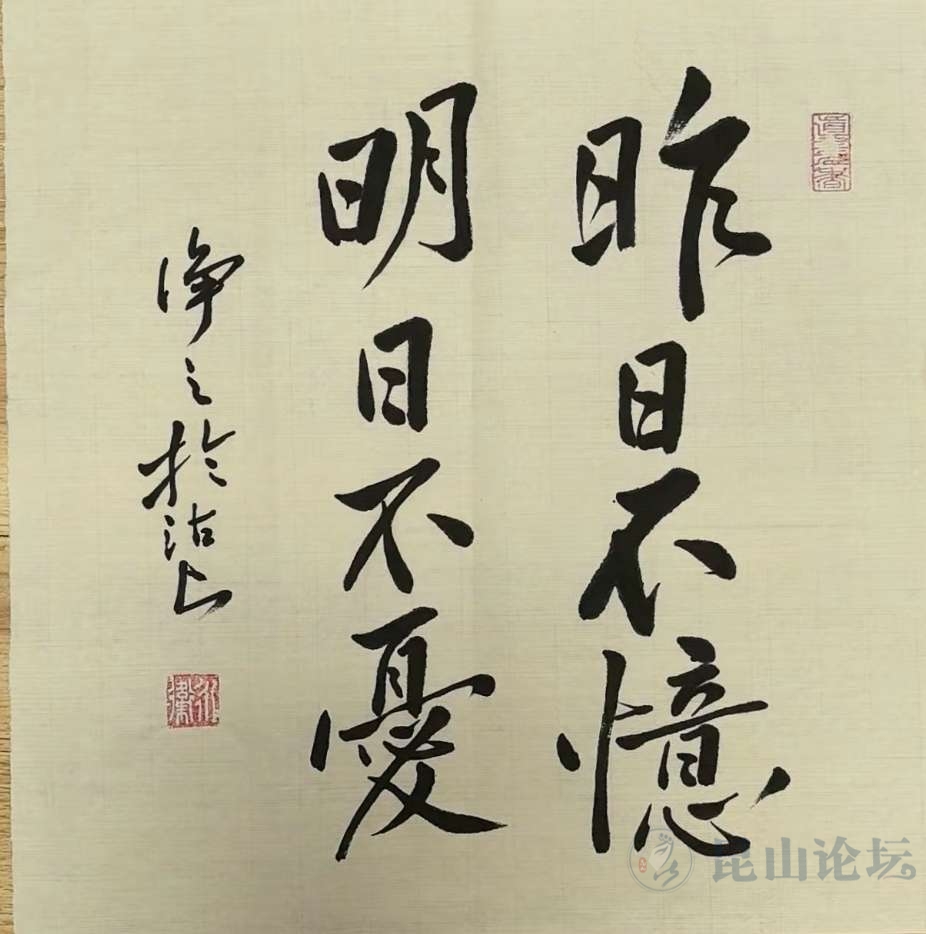 昨日不憶
明日不憂
淨之於沽上
昆山论坛